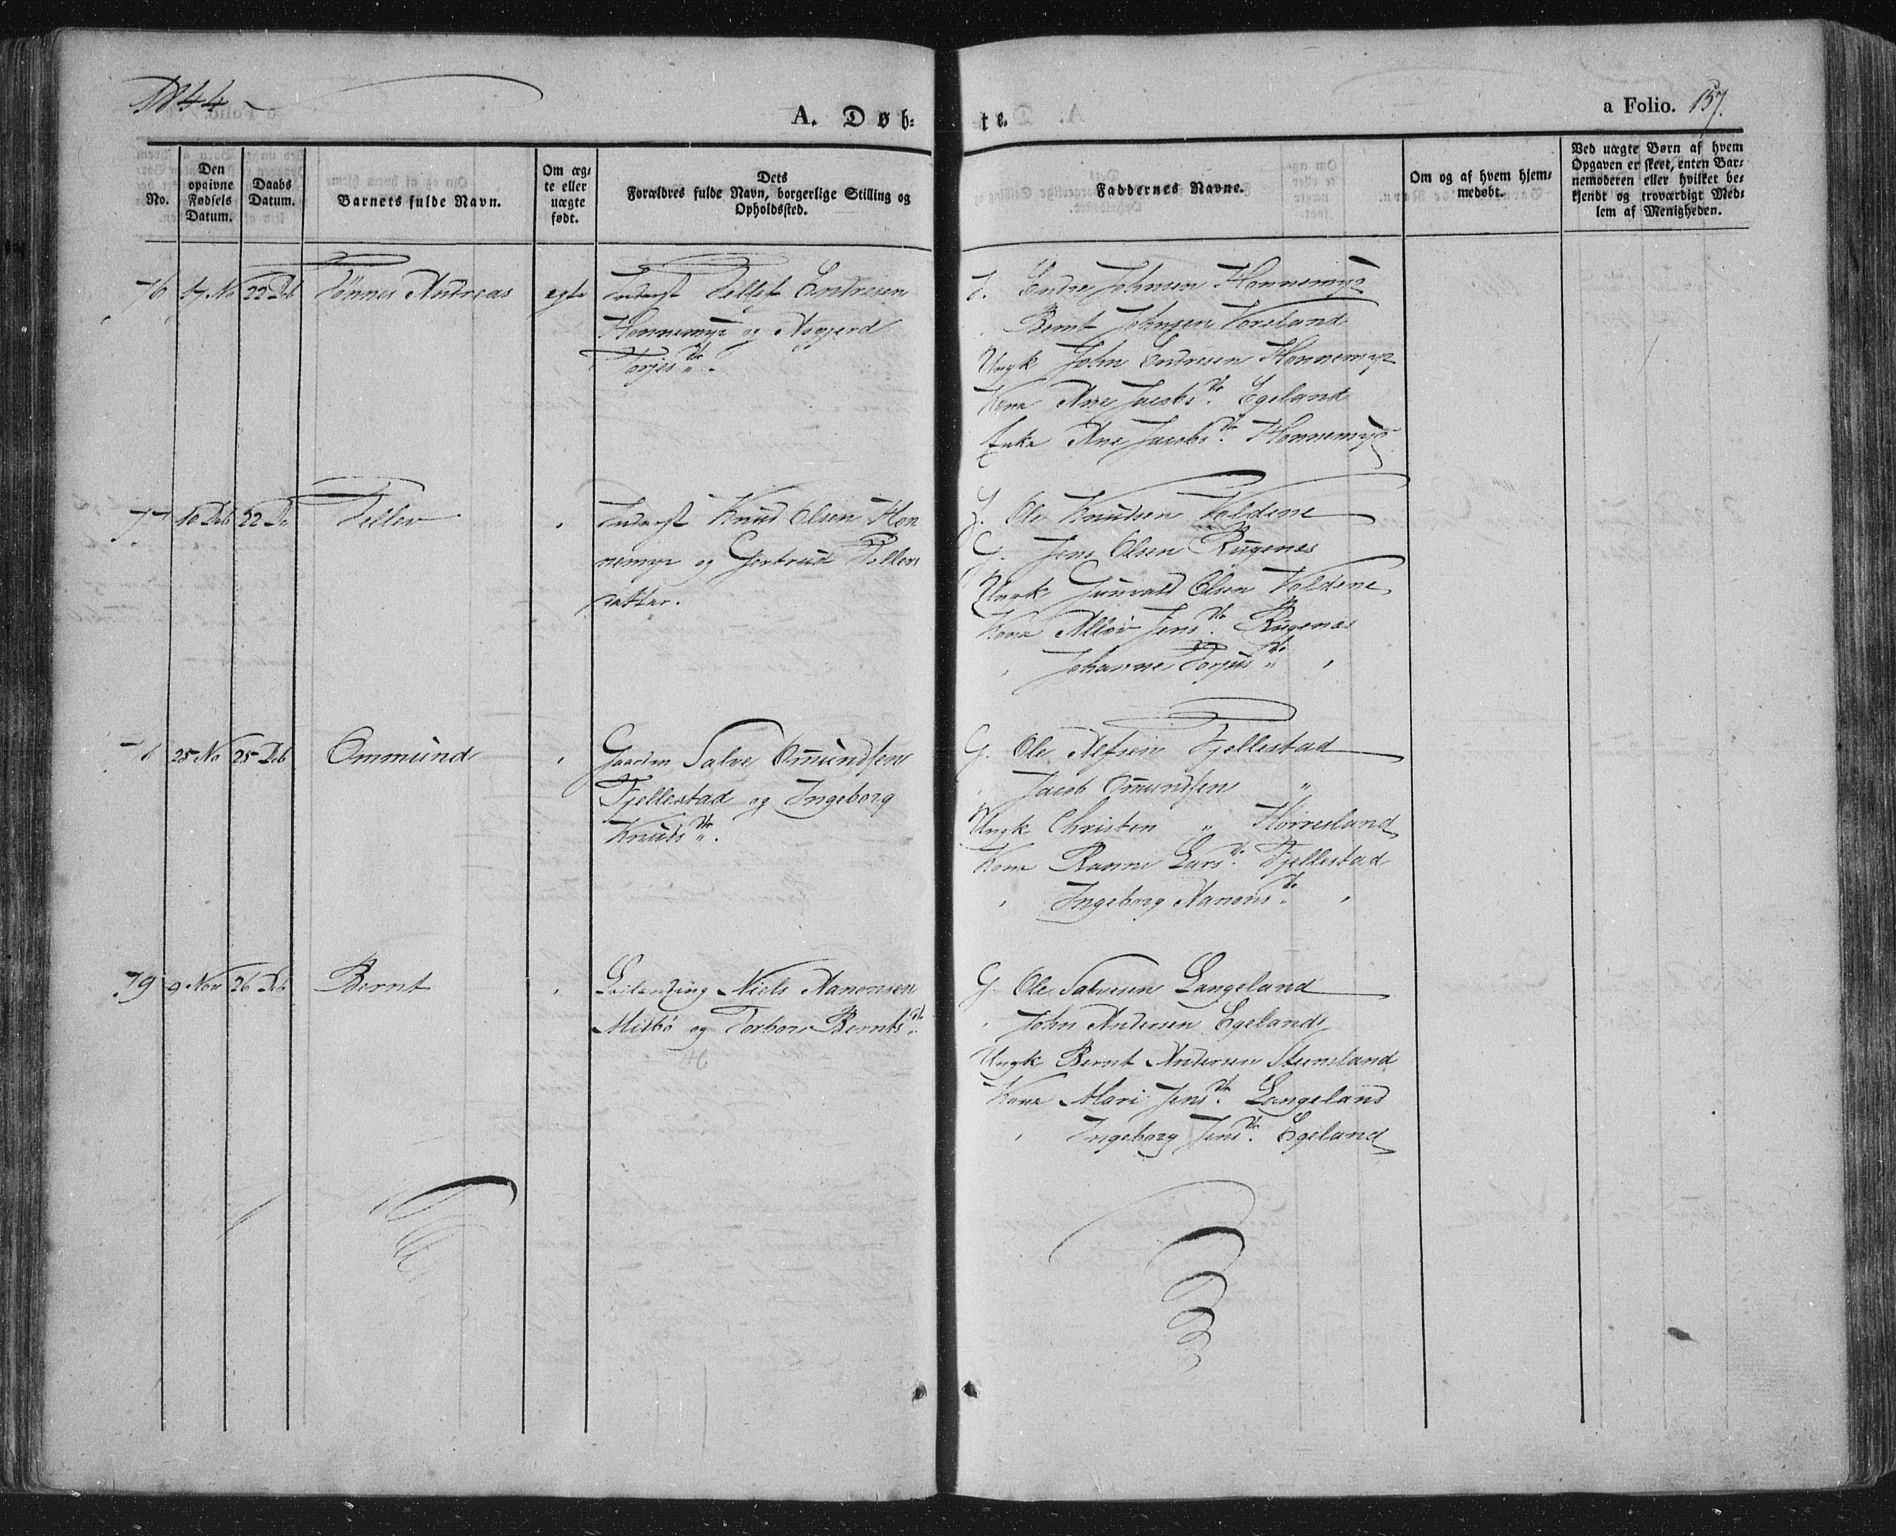 1844
A. Døb-
te.
a Folio. 157.
No.
Den opgivne Fødsels Datum.
Daabs Datum.
Barnets fulde Navn.
Om ægte eller uægte født.
Dets Forældres fulde Navn, borgerlige Stilling og Opholdssted.
Faddernes Navne.
Om og af hvem hjemmedøbt.
Ved uægte Børn af hvem Opgaven er skeet, enten Barnemoderen eller hvilket bekjendt og troværdigt Medlem af Menigheden.
76 17 No 22 Deb Tønnes Andreas ægte Inderst Tellef Endresen
Honnemyr og Aagjerd
Torjesdtr.
Endre Johnsen Honnemyr
Bernt Johnsen Voreland
Ungk John Endresen Honnemyr
Kone Ane Jacobsdtr. Egeland
Enke Ane Jacobsdtr. Honnemyr
77 10 Deb 22 De Tellev " Inderst Knud Olsen Hon
nemyr og Gjertrud Tellevs
datter.
Ole Knudsen Voldene
G. Jens Olsen Rugenæs
Ungk Gunvald Olsen Voldene
Kone Allov Jensdtr. Rugenæs
" Johanne Torjusdtr. "
78 25 No 25 Deb Ommund " Gaardm Salve Omundsen
Fjellestad og Ingeborg
Knudsdtr.
G. Ole Alfsen Fjellestad
Jacob Omundsen "
Ungk Christen " Hørresland
Kone Ranne Larsdtr. Fjellestad
" Ingeborg Aanonsdtr. "
79 9 Nov 26 Deb Bernt " Leilending Niels Aanonsen
Misbø og Torbor Berntsdtr.
G. Ole Salvesen Langeland
" John Andersen Egeland
Ungk Bernt Andersen Steensland
Kone Mari Jensdtr. Langeland
" Ingeborg Jensdtr. Egeland